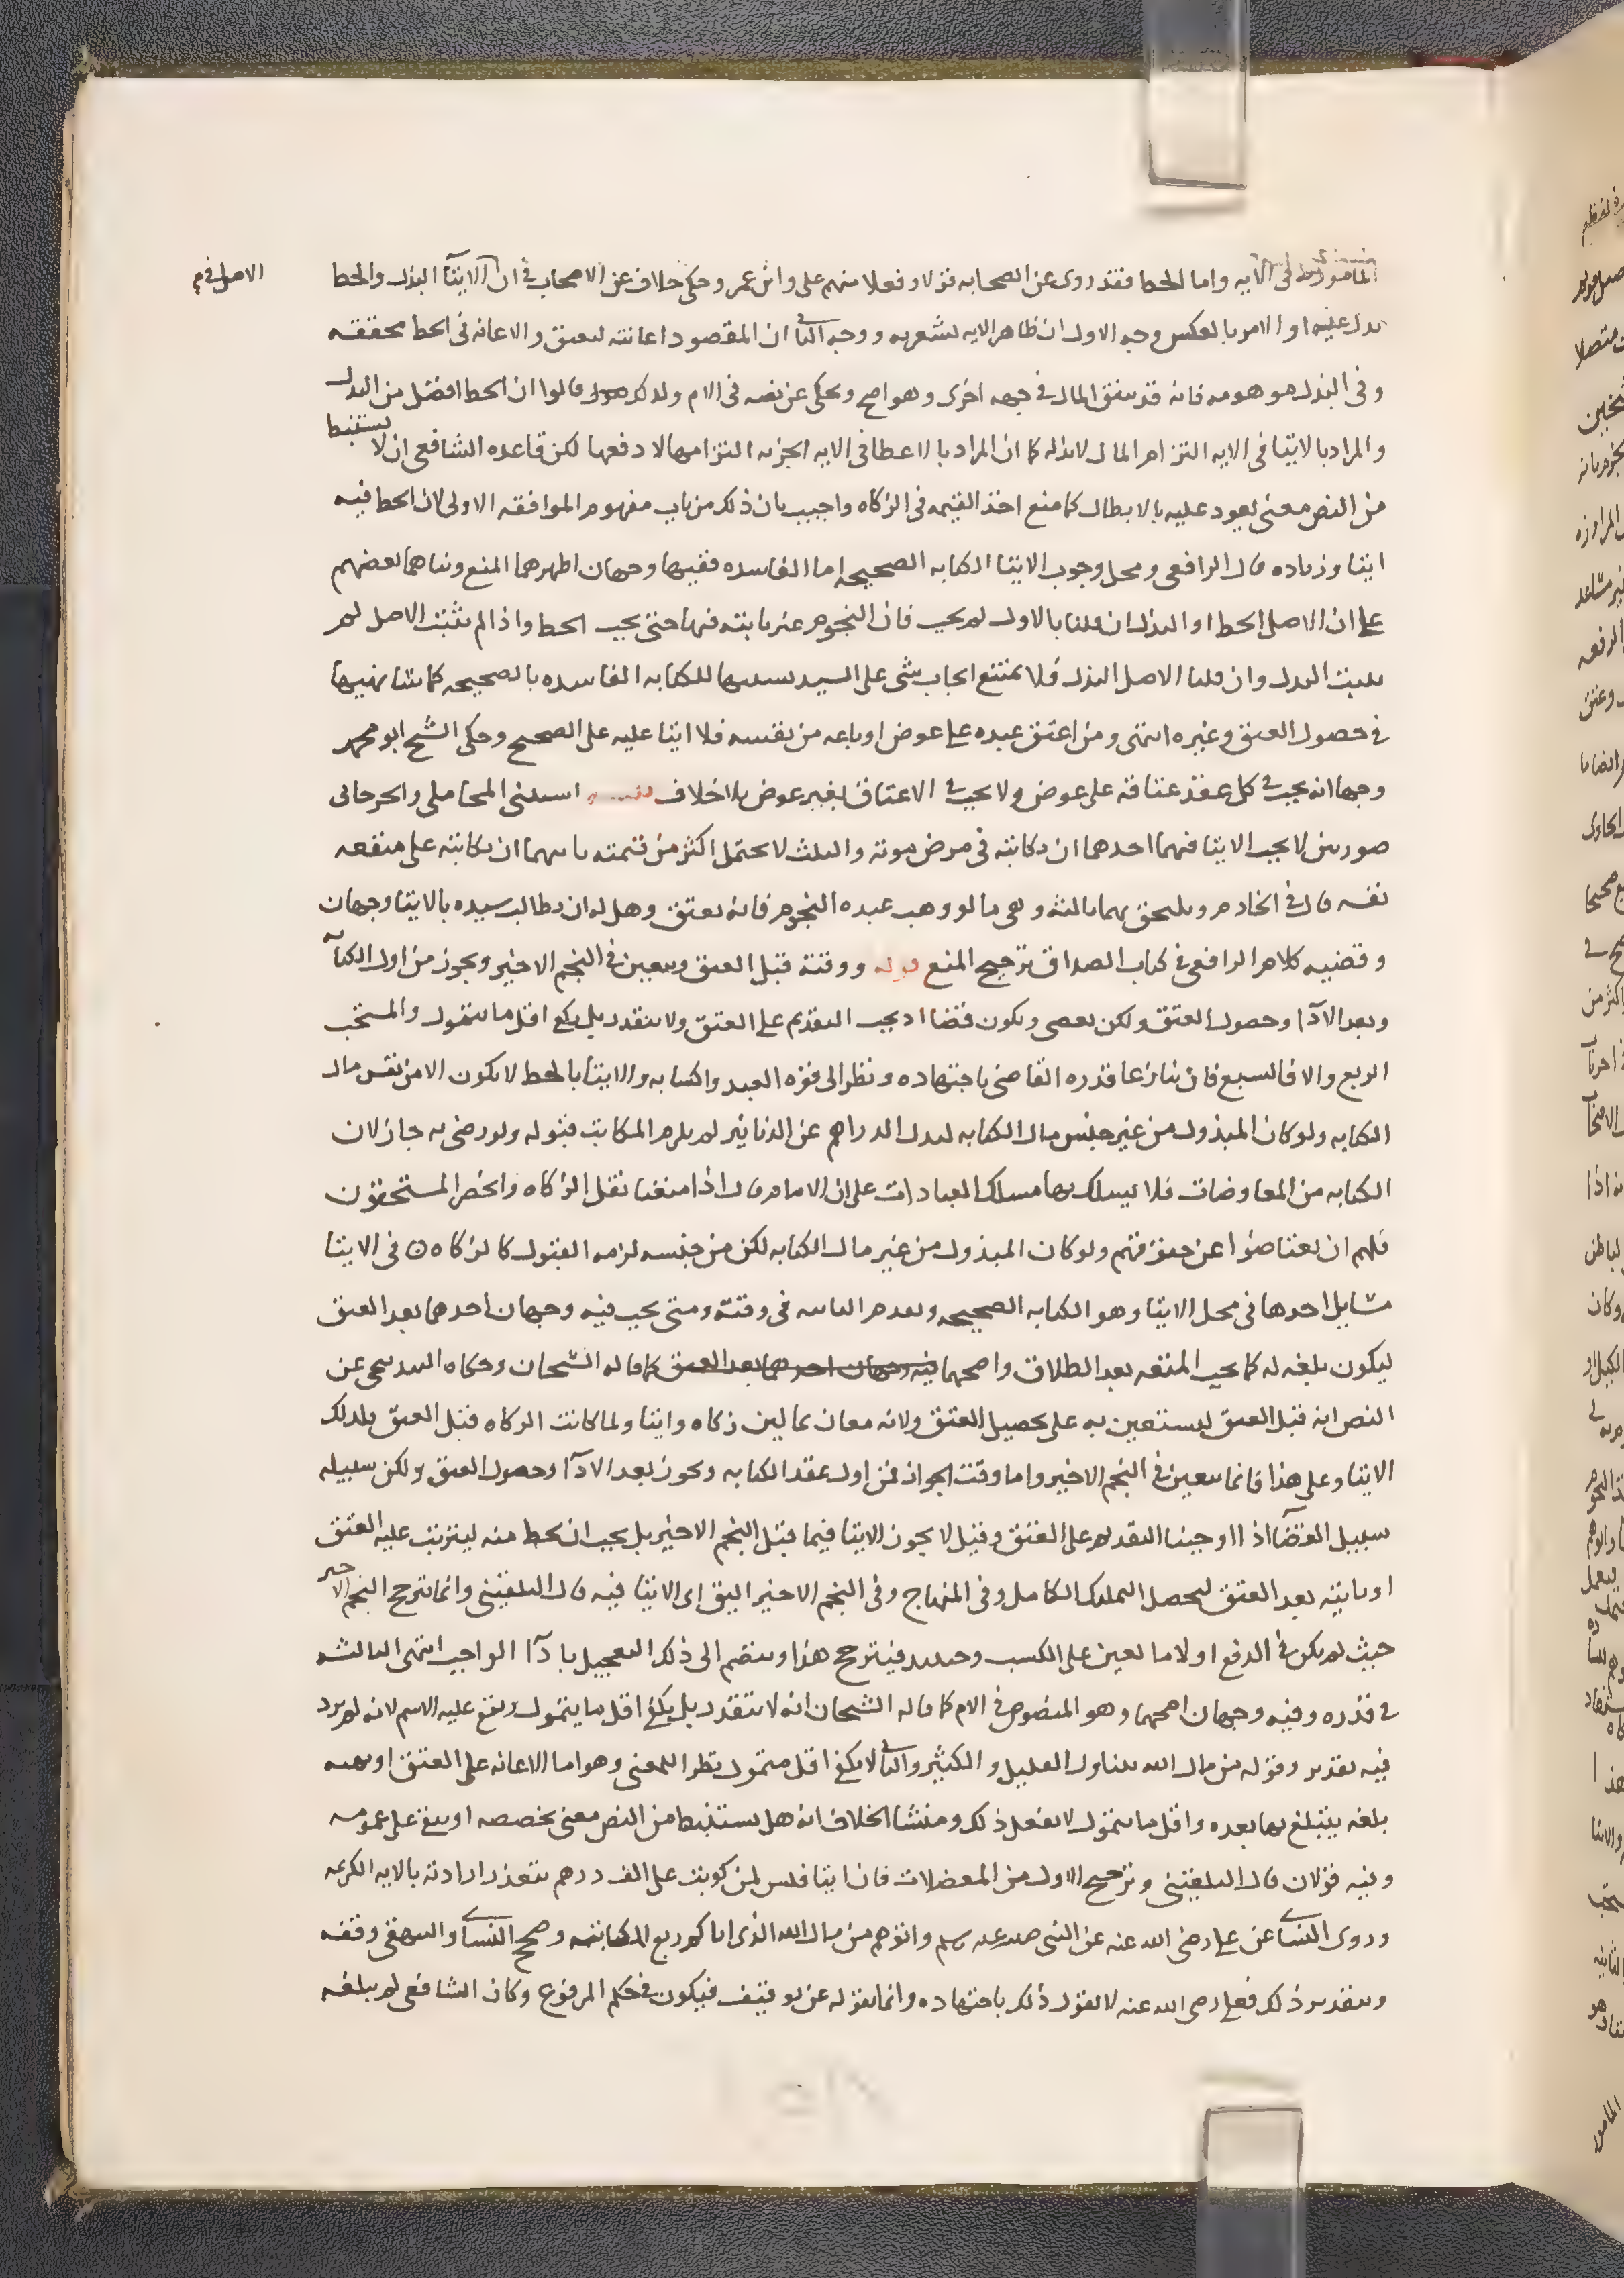 المامور به في الايه واما الحط فقد روى عن الصحابه قولا وفعلا منهم على وابن عمر وحكى خلاف عن الاصحاب في ان الايتآ البذل والحط
الاصل في
بدل عليه او الامر بالعكس وجه الاول ان ظاهر الايه يشعر به ووجه الثاني ان المقصود اعانته ليعتق والاعانه في الحط محققه
وفي البذل موهومه فانه قد ينفق المال في جهه اخرى وهو اصح ويحكى عن نصه في الام ولذلك قالوا ان الحط افضل من البذل
والمراد بالايتا في الايه التزام المال لا بذله كما ان المراد بالاعطا في الايه الجزيه التزامها لا دفعها لكن قاعده الشافعي ان لا يستنبط
من النص معنى يعود عليه بالابطال كما منع اخذ القيمه في الزكاه واجيب بان ذلك من باب مفهوم الموافقه الاولى لان الحط فيه
ايتا وزياده قال الرافعي ومحل وجوب الايتا الكتابه الصحيحه اما الفاسده ففيها وجهان اظهرهما المنع وبناهما بعضهم
على ان الاصل الحط او البذل ان قلنا بالاول لم يجب فان النجوم غير ثابته فيها حتى يجب الحط واذا لم يثبت الاصل لم
يثبت البدل وان قلنا الاصل البذل فلا يمتنع ايجاب شي على السيد تشبيها للكتابه الفاسده بالصحيحه كما شابهتها
في حصول العتق وغيره انتهى ومن اعتق عبده على عوض او باعه من نفسه فلا ايتا عليه على الصحيح وحكى الشيخ ابو محمد
وجها انه يجب في كل عقد عتاقه على عوض ولا يجب في الاعتاق بغير عوض بلا خلاف استثنى المحاملي والجرجاني
صورتين لا يجب الايتا فيهما احدهما ان يكاتبه في مرض موته والثلث لا يحتمل اكثر من قيمته ثانيهما ان يكاتبه على منفعه
نفسه قال في الخادم ويلحق بهما ثالثه وهي ما لو وهب عبده النجوم فانه يعتق وهل له ان يطالب سيده بالايتا وجهان
وقضيه كلام الرافعي في كتاب الصداق ترجيح المنع قوله ووقته قبل العتق ويتعين في النجم الاخير ويجوز من اول الكتابه
وبعد الادآ وحصول العتق ولكن يعصي ويكون قضا اذ يجب التقديم على العتق ولا يتقدر بل يكفي اقل ما يتمول والمستحب
الربع والا فالسبع فان تنازعا قدره القاضي باجتهاده ونظر الى قوه العبد واكتسابه والايتا بالحط لا يكون الا من نفس مال
الكتابه ولو كان المبذول من غير جنس مال الكتابه كبذل الدراهم عن الدنانير لم يلزم المكاتب قبوله ولو رضي به جاز لان
الكتابه من المعاوضات فلا يسلك بها مسلك العبادات على ان الامام قال اذا منعنا نقل الزكاه وانحصر المستحقون
فلهم ان يعتاضوا عن حقوقهم ولو كان المبذول من غير مال الكتابه لكن من جنسه لزمه القبول كالزكاه في الايتا
مسايل احدها في محل الايتا وهو الكتابه الصحيحه وتقدم الثانيه في وقته ومتى يجب فيه وجهان احدهما بعد العتق
ليكون بلغه له كما يجب المتعه بعد الطلاق واصحهما فيه وجهان احدهما بعد العتق كما قاله الشيخان وحكاه البندنيجي عن
النص انه قبل العتق ليستعين به على تحصيل العتق ولانه معان بمالين زكاه وايتا ولما كانت الزكاه قبل العتق فكذلك
الايتا وعلى هذا فانما يتعين في النجم الاخير واما وقت الجواز فمن اول عقد الكتابه ويجوز بعد الادآ وحصول العتق ولكن سبيله
سبيل القضآ اذا اوجبنا التقديم على العتق وقيل لا يجوز الايتا فيما قبل النجم الاخير بل يجب ان يحط منه ليترتب عليه العتق
او يايته بعد العتق ليحصل التمليك الكامل وفي المنهاج وفي النجم الاخير اليق اي الايتا فيه قال البلقيني وانما ترجح النجم الاخير
حيث لم يكن في الدفع اولا ما يعين على الكسب وحينيذ فيترجح هذا وينضم الى ذلك التعجيل بادآ الواجب انتهى الثالثه
في قدره وفيه وجهان اصحهما وهو المنصوص في الام كما قاله الشيخان انه لا يتقدر بل يكفي اقل ما يتمول ويقع عليه الاسم لانه لم يرد
فيه تقدير وقوله من مال الله يتناول القليل والكثير والثاني لا يكفي اقل متمول نظرا للمعنى وهو اما الاعانه على العتق او
بلغه يتبلغ بها بعده واقل ما يتمول لا يفعل ذلك ومنشا الخلاف انه هل يستنبط من النص معنى يخصصه او يبقى على عمومه
وفيه قولان قال البلقيني وترجيح الاول من المعضلات فان ايتا فلس لمن كوتب على الف درهم يتعذر ارادته بالايه الكريمه
وروى النسائي عن علي رضي الله عنه عن النبي صلى الله عليه وسلم واتوهم من مال الله الذي اتاكم ربع الكتابه وصحح النسائي والبيهقي وقفه
وبتقدير ذلك فعلي رضي الله عنه لا يقول ذلك باجتهاده وانما يقوله عن توقيف فيكون في حكم المرفوع وكان الشافعي لم يبلغه